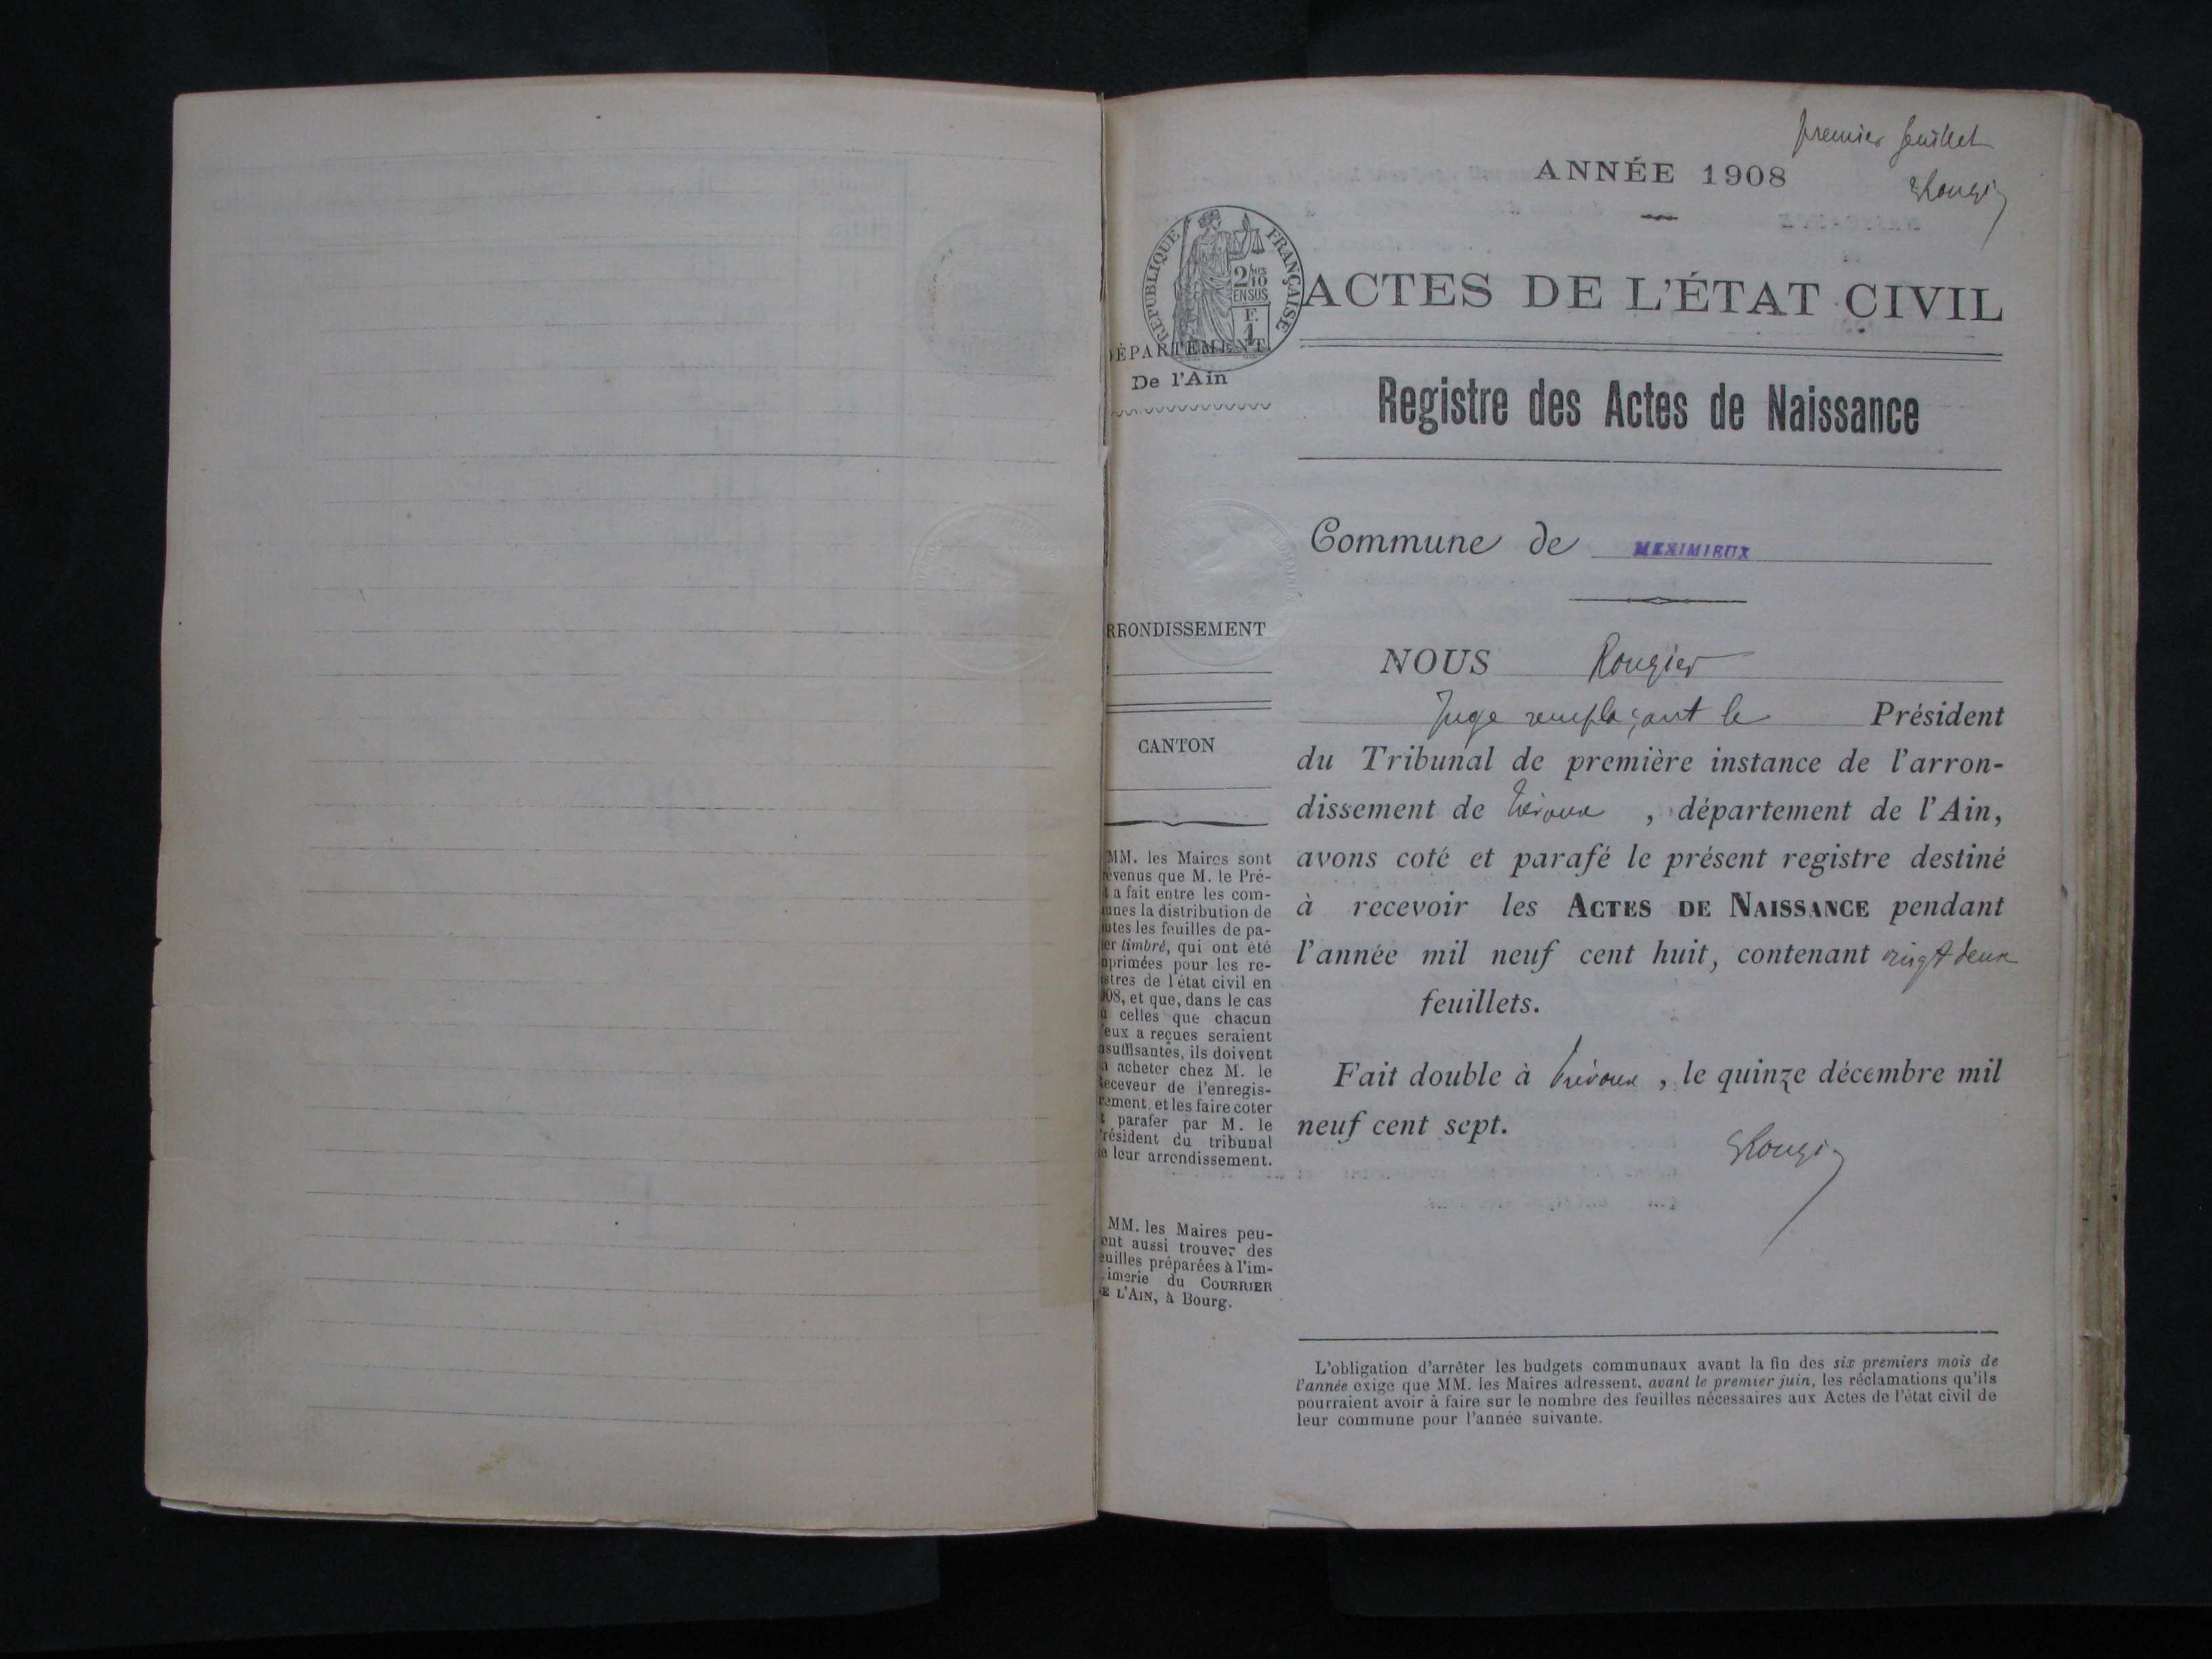 premier feuillet
ERougier
ANNÉE 1908
RÉPUBLIQUE FRANÇAISE
2/10
EN SUS
F.
1
ACTES DE L'ÉTAT CIVIL
ÉPARTEMENT
De l'Ain
Registre des Actes de Naissance
Commune de MEXIMIEUX
RRONDISSEMENT
CANTON
MM. les Maires sont
évenus que M. le Pré-
t a fait entre les com-
unes la distribution de
utes les feuilles de pa-
er timbré, qui ont été
primées pour les re-
stres de l'état civil en
908, et que, dans le cas
ù celles que chacun
'eux a reçues seraient
nsuffisantes, ils doivent
n acheter chez M. le
eceveur de l'enregis-
rement, et les faire coter
t parafer par M. le
résident du tribunal
e leur arrondissement.
MM. les Maires peu-
ent aussi trouver des
euilles préparées à l'im-
imerie du COURRIER
E L'AIN, à Bourg.
NOUS Rougier
Juge remplaçant le Président
du Tribunal de première instance de l'arron-
dissement de Trévoux , département de l'Ain,
avons coté et parafé le présent registre destiné
à recevoir les ACTES DE NAISSANCE pendant
l'année mil neuf cent huit, contenant vingt deux
feuillets.
Fait double à Trévoux , le quinze décembre mil
neuf cent sept.
ERougier
L'obligation d'arrêter les budgets communaux avant la fin des six premiers mois de
l'année exige que MM. les Maires adressent, avant le premier juin, les réclamations qu'ils
pourraient avoir à faire sur le nombre des feuilles nécessaires aux Actes de l'état civil de
leur commune pour l'année suivante.